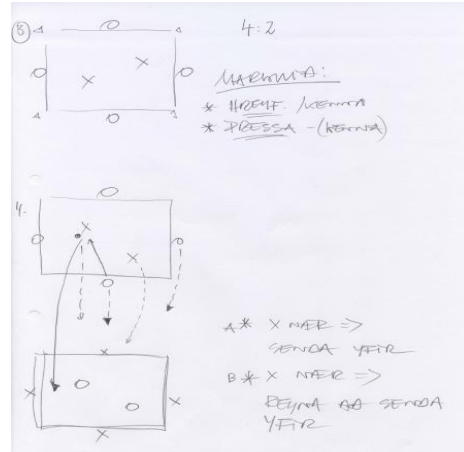 3 4:2
MARKMIÐ:
* HREYF. / KENNA
* PRESSA - (KENNA)
4.
A * X NÆR =>
SENDA YFIR
B * X NÆR =>
REYNA AÐ SENDA
YFIR